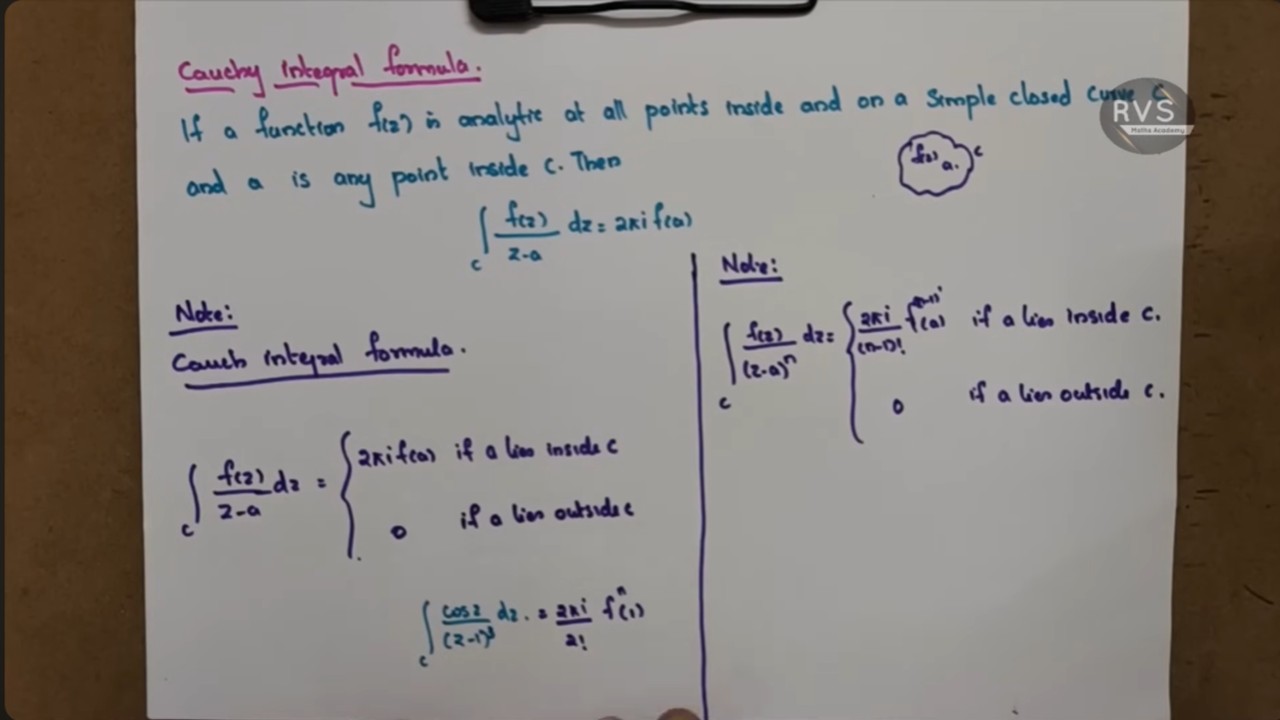 Cauchy Integral formula.
If a function f(z) is analytic at all points inside and on a simple closed curve C
and a is any point inside C. Then
f(z) a. c
∫_c f(z)/(z-a) dz = 2πi f(a)
Note:
Cauch integral formula.
∫_c f(z)/(z-a) dz = { 2πi f(a) if a lies inside c
0 if a lies outside c
∫_c cosz/(z-1)^3 dz. = 2πi/2! f''(1)
Note:
∫_c f(z)/(z-a)^n dz = { 2πi/(n-1)! f^(n-1)(a) if a lies inside c.
0 if a lies outside c.
RVS
Maths Academy